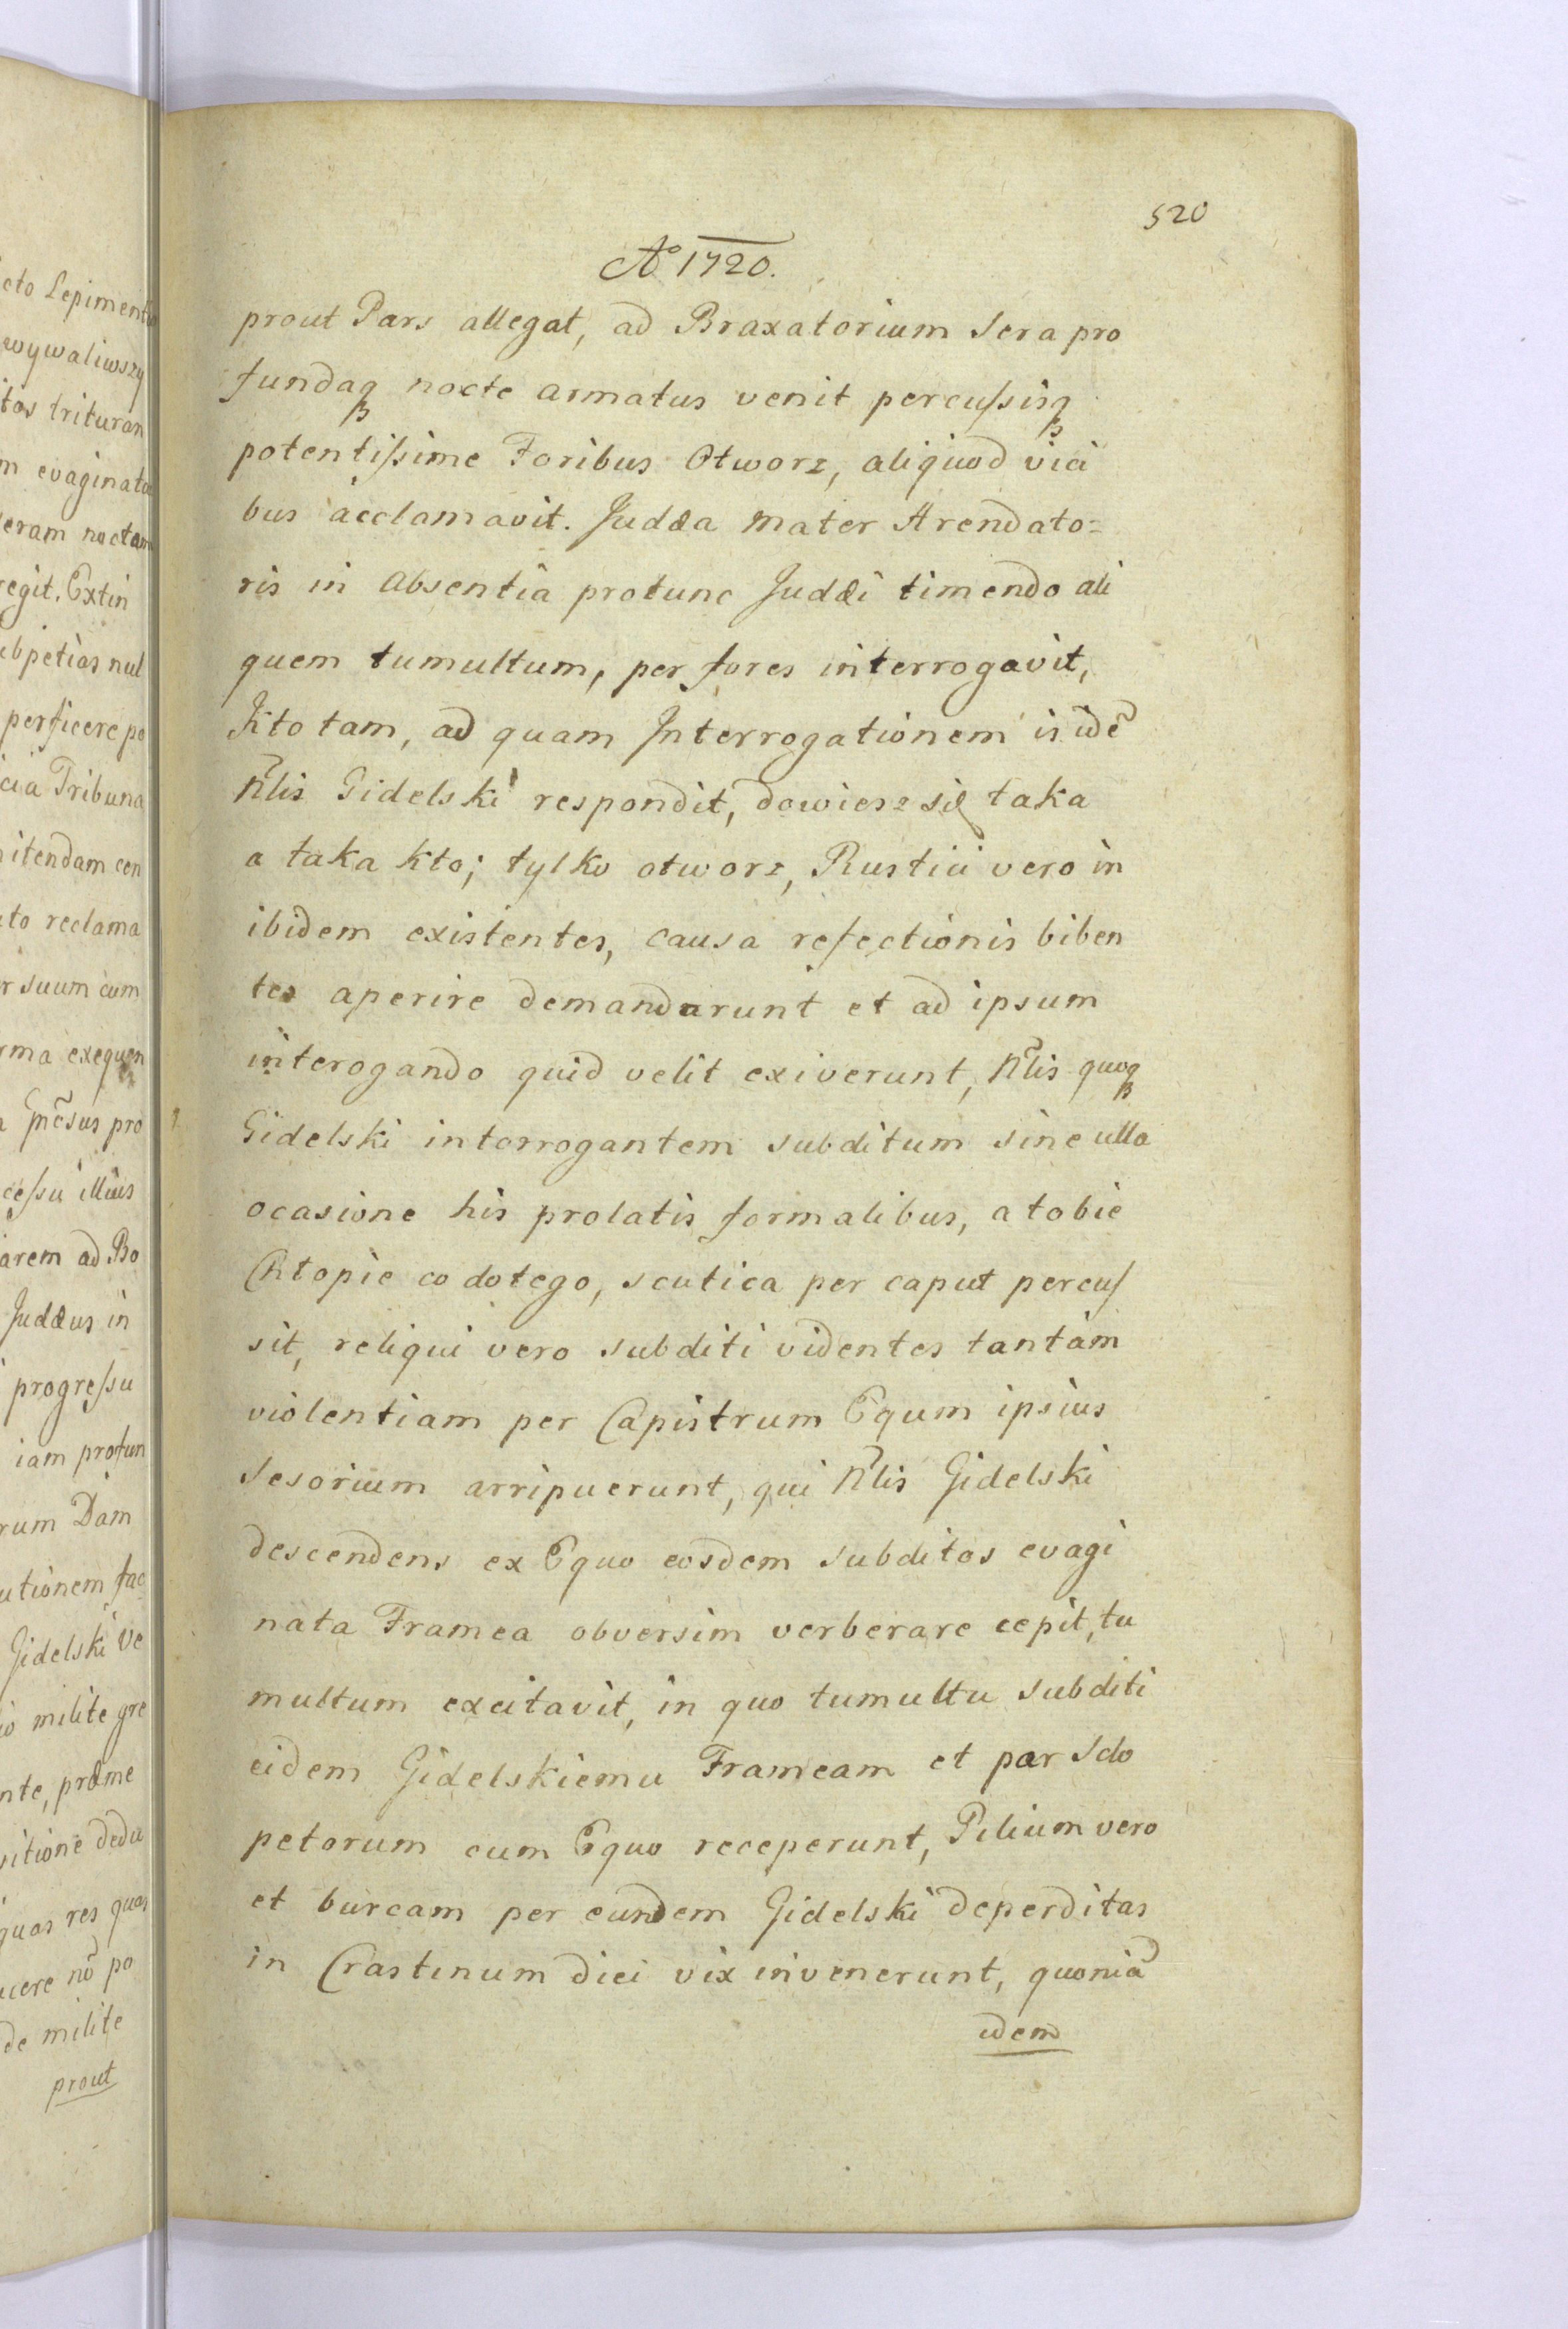 520
Aº 1720.
prout Pars allegat, ad Braxatorium sera pro
fundaq₃ nocte armatus venit percuſsisq₃
potentiſsime Foribus Otworz, aliquod vici
bus acclamavit. Judæa Mater Arendato=
ris in absentia protunc Judæi timendo ali
quem tumultum, per fores interrogavit,
Kto tam, ad quam Interrogationem is idẽ
Nlis Gidelski respondit, dowiesz się taka
a taka kto; tylko otworz, Rustici vero in
ibidem existentes, causa refectionis biben
tes aperire demandarunt et ad ipsum
interogando quid velit exiverunt, Nlis quoq₃
Gidelski intorrogantem subditum sine ulla
ocasione his prolatis formalibus, a tobie
Chłopie co dotego, scutica per caput percuſ
sit, reliqui vero subditi videntes tantam
violentiam per Capistrum Equm ipsius
sesorium arripuerunt, qui Nlis Gidelski
descendens ex Equo eosdem subditos evagi
nata Framea obversim verberare cepit, tu
multum excitavit, in quo tumultu subditi
eidem Gidelskiemu Frameam et par Sclo
petorum cum Equo receperunt, Pilium vero
et burcam per eundem Gidelski deperditas
in Crastinum diei vix invenerunt, quoniã
idem
cto Sepiment
wywaliwszy
tos trituran
m evaginata
seram noctem
regit. Extin
ubpetias nul
perficere po
cia Tribuna
itendam cen
to reclama
r suum cum
rma exequen
Pncsus pro
ceſsu illius
arem ad Bo
Judæus in
progreſsu
iam profun
rum Dam
utionem fac
Gidelski Ve
io milite gre
nte, præme
sitione dedu
quas res quas
ucere nõ po
de milite
prout